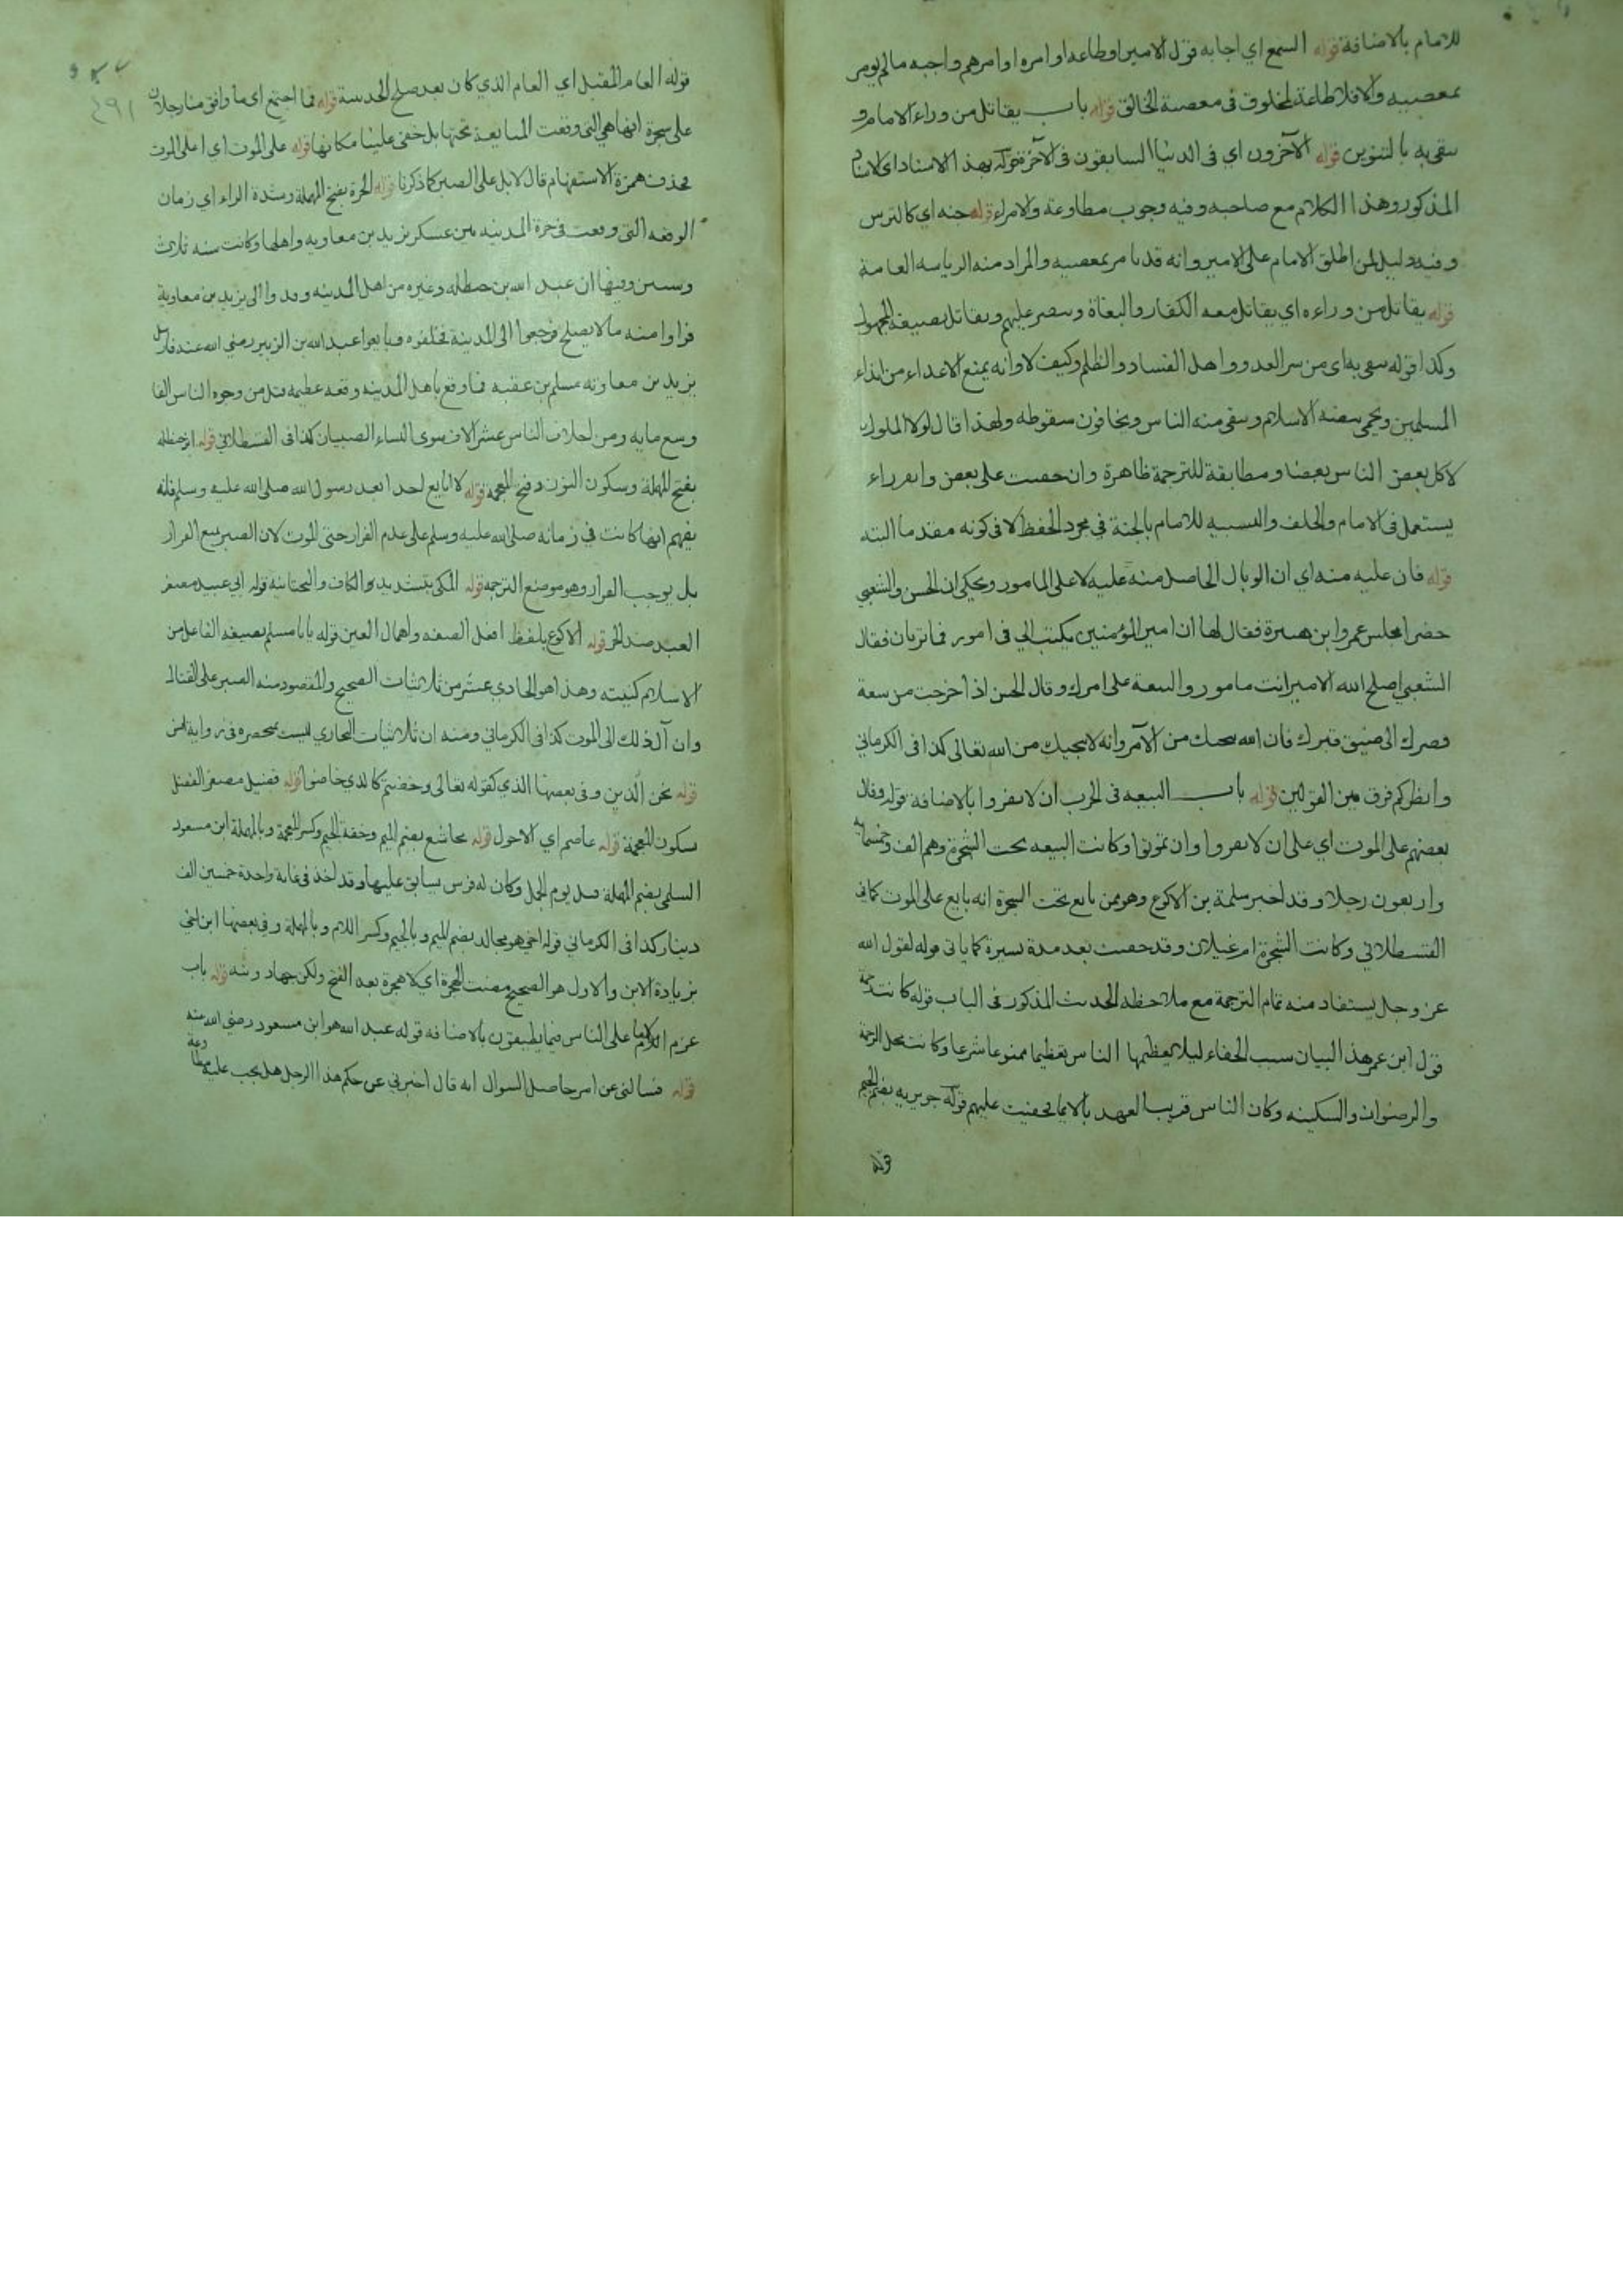 للامام بالاضافة قوله السمع اي اجابه قول الامير اوطاعه اوامره اوامرهم واجبه مالم يومر
بمعصيه والافلا طاعة لمخلوق فى معصية الخالق قوله باب يقاتل من وراء الامام و
يتقى به بالتنوين قوله الآخرون اي فى الدنيا السابقون فى الآخرة قوله بهذا الاسناد اى الاسناد
المذكور وهذا الكلام مع صاحبه وفيه وجوب مطاوعة والامراء قوله جنه اي كالترس
وفيه دليل لمن اطلق الامام على الامير وانه قد يامر بمعصيه والمراد منه الرياسه العامة
قوله يقاتل من وراءه اي يقاتل معه الكفار والبغاة وينصر عليهم ويقاتل بصيغة المجهول
وكذا قوله يتقى به اى من شر العدو واهل الفساد والظلم وكيف لا وانه يمنع الاعداء من ايذاء
المسلمين ويحمى بيضة الاسلام ويتقى منه الناس ويخافون سقوطه ولهذا قال لولا الملوك
لاكل بعض الناس بعضا ومطابقة للترجمة ظاهرة وان خفيت على بعض وراء
يستعمل فى الامام والخلف والتشبيه للامام بالجنة في مجرد الحفظ لا فى كونه مقدما البته
قوله فان عليه منه اي ان الوبال الحاصل منه عليه لا على المامور ويحكى ان الحسن والشعبي
حضرا مجلس عمرو ابن هبيرة فقال لهما ان امير المؤمنين يكتب الي فى امور فما تريان فقال
الشعبي اصلح الله الامير انت مامور والتبعة على امرك وقال الحسن اذا خرجت من سعة
قصرك الى ضيق قبرك فان الله ينجيك من الآمر وانه لا ينجيك من الله تعالى كذا فى الكرماني
وانظر كم فرق بين القولين قوله باب البيعه فى الحرب ان لا يفروا بالاضافة قوله وقال
بعضهم على الموت اي على ان لا يفروا وان تموتوا وكانت البيعه تحت الشجرة وهم الف وخمسمايه
واربعون رجلا وقد اخبر سلمة بن الاكوع وهو ممن بايع تحت الشجرة انه بايع على الموت كما فى
القسطلاني وكانت الشجرة ام غيلان وقد خفيت بعد مدة يسيرة كما ياتى قوله لقول الله
عز وجل يستفاد منه تمام الترجمة مع ملاحظه الحديث المذكور فى الباب قوله كانت رحمة
قول ابن عمر هذا لبيان سبب الخفاء ليلا يعظمها الناس تعظيما ممنوعا شرعا وكانت محل الرحمة
والرضوان والسكينه وكان الناس قريب العهد بالايمان فخفيت عليهم قوله جويريه بضم الجيم
قوله
قوله العام المقبل اي العام الذي كان بعد صلح الحديبية قوله فما اجتمع اى ما وافق منا رجلان
على شجرة انها هي التى وقعت المبايعة تحتها بل خفى علينا مكانها قوله على الموت اي اعلى الموت
بحذف همزة الاستفهام قال لا بل على الصبر كما ذكرنا قوله الحرة بفتح المهملة وشدة الراء اي زمان
الوقعه التى وقعت فى حرة المدينه من عسكر يزيد بن معاويه واهلها وكانت سنه ثلاث
وستين وفيها ان عبد الله بن حنظله وغيره من اهل المدينه وفدوا الى يزيد بن معاوية
فراوا منه مالا يصلح فرجعوا الى المدينة فخلفوه وبايعوا عبد الله بن الزبير رضي الله عنه فارسل
يزيد بن معاويه مسلم بن عقبه فاوقع باهل المدينه وقعه عظيمه قتل من وجوه الناس الفا
وسبع مايه ومن اخلاف الناس عشر الاف سوى النساء الصبيان كذا فى القسطلاني قوله ابن حنظله
بفتح المهملة وسكون النون وفتح المعجمه قوله لا ابايع احدا بعد رسول الله صلى الله عليه وسلم فانه
يفهم انها كانت في زمانه صلى الله عليه وسلم على عدم الفرار حتى الموت لان الصبر يمنع الفرار
بل يوجب الفرار وهو موضع الترجمه قوله المكي بتشديد الكاف والتحتانيه قوله ابي عبيد مصغر
العبد ضد الحر قوله الاكوع بلفظ افعل الصفه واهمال العين قوله يا ابا مسلم بصيغه الفاعل من
الاسلام كنيته وهذا هو الحادي عشر من ثلاثيات الصحيح والمقصود منه الصبر على القتال
وان آل ذلك الى الموت كذا فى الكرماني ومنه ان ثلاثيات البخاري ليست بمنحصره فى رواية انس
قوله نحن الذين وفى بعضها الذي كقوله تعالى وخضتم كالذي خاضوا قوله فضيل مصغر الفضل
بسكون المعجمة قوله عاصم اي الاحول قوله مجاشع بضم الميم وخفة الجيم وكسر المعجمة وبالمهملة ابن مسعود
السلمى بضم المهملة قتل يوم الجمل وكان له فرس يسابق عليها وقد اخذ فى غاية واحدة خمسين الف
دينار كذا فى الكرماني قوله اخي هو مجالد بضم الميم وبالجيم وكسر اللام وبالمهملة وفى بعضها ابن اخي
بزيادة الابن والاول هو الصحيح مضت الهجرة اي لا هجرة بعد الفتح ولكن جهاد ونيه قوله باب
عزم الامام على الناس فيما يطيقون بالاضافه قوله عبد الله هو ابن مسعود رضي الله عنه
قوله فسالنى عن امر حاصل السوال انه قال اخبرني عن حكم هذا الرجل هل يجب عليه مطاوعة